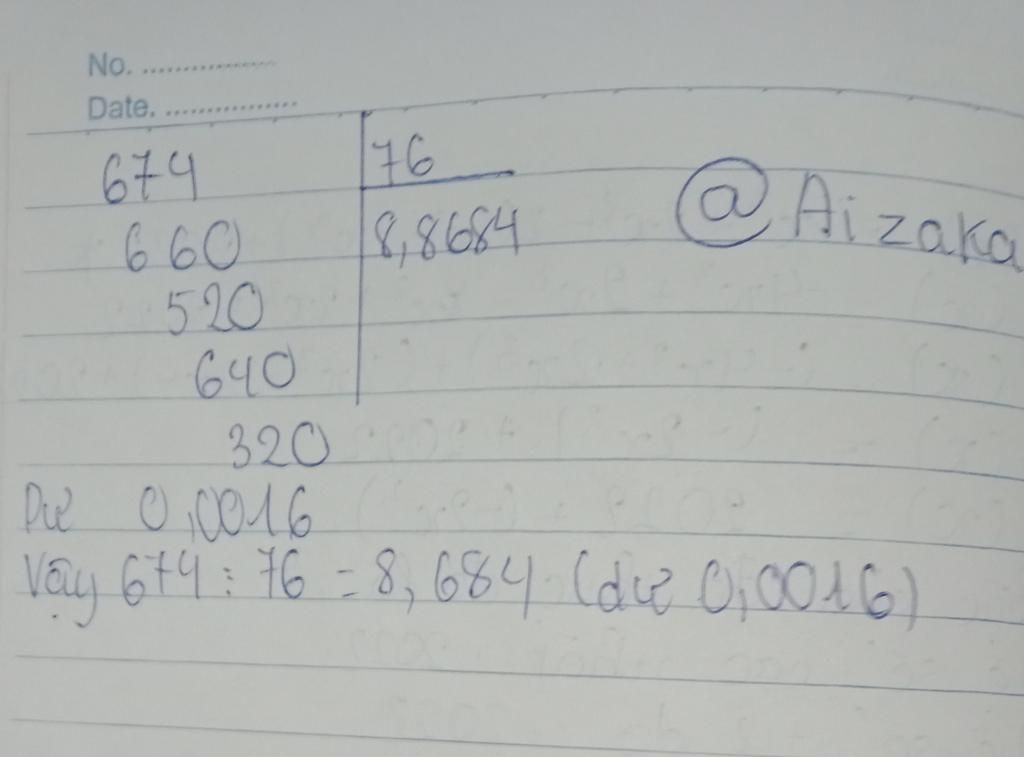 No. ................
Date. ................
674 76
660 8,8684
@Aizaka
520
640
320
Dư 0,0016
Vậy 674 : 76 = 8,684 (dư 0,0016)